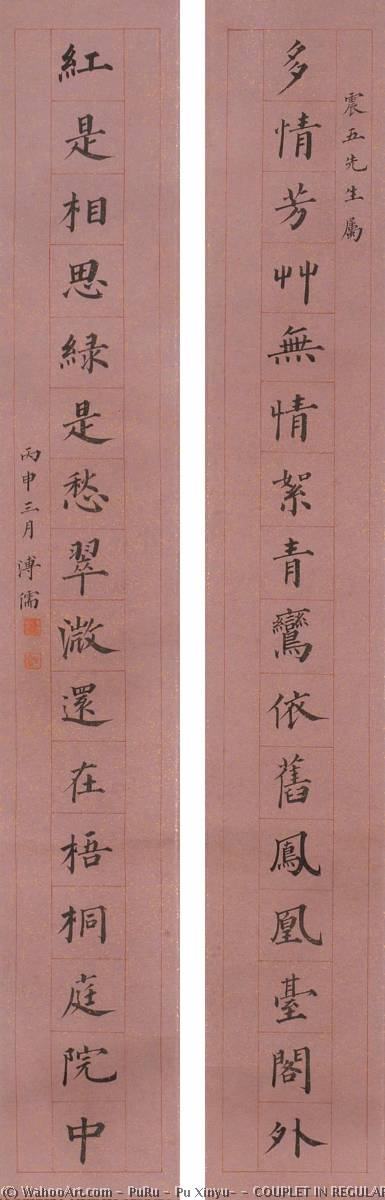 震五先生屬
多情芳艸無情絮青鸞依舊鳳凰臺閣外
紅是相思綠是愁翠微還在梧桐庭院中
丙申三月溥儒
(C) WahooArt.com - PuRu - Pu Xinyu- - COUPLET IN REGULAR